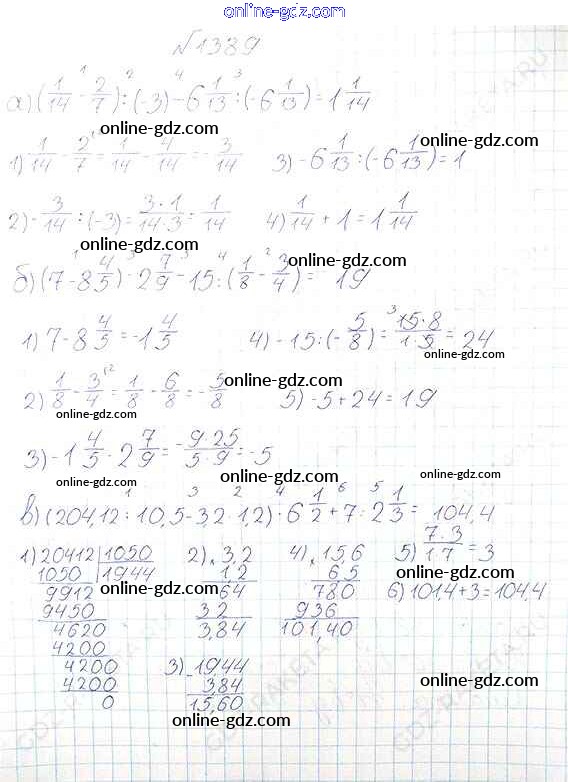 online-gdz.com
№1389
а) (1/14 - 2/7) : (-3) - 6 1/13 : (-6 1/13) = 1 1/14
online-gdz.com
online-gdz.com
1) 1/14 - 2/7 = 1/14 - 4/14 = -3/14 3) -6 1/13 : (-6 1/13) = 1
2) -3/14 : (-3) = 3·1/14·3 = 1/14 4) 1/14 + 1 = 1 1/14
online-gdz.com
online-gdz.com
б) (7 - 8 4/5) · 2 7/9 - 15 : (1/8 - 3/4) = 19
1) 7 - 8 4/5 = -1 4/5 4) -15 : (-5/8) = 15·8/1·5 = 24
online-gdz.com
online-gdz.com
2) 1/8 - 3/4 = 1/8 - 6/8 = -5/8 5) -5 + 24 = 19
online-gdz.com
online-gdz.com
3) -1 4/5 · 2 7/9 = -9·25/5·9 = -5
online-gdz.com
online-gdz.com
online-gdz.com
в) (204,12 : 10,5 - 3,2 · 1,2) · 6 1/2 + 7 : 2 1/3 = 104,4
online-gdz.com
1) 20412 | 1050 2) × 3,2 4) × 15,6 5) 7·3/1·7 = 3
1050 | 19,44 1,2 6,5
online-gdz.com
online-gdz.com
9912 64 780 6) 101,4 + 3 = 104,4
9450 32 936
4620 3,84 101,40
online-gdz.com
online-gdz.com
4200
4200 3) - 19,44
4200 3,84
0 15,60
online-gdz.com
online-gdz.com
GDZ-RAKETA.RU